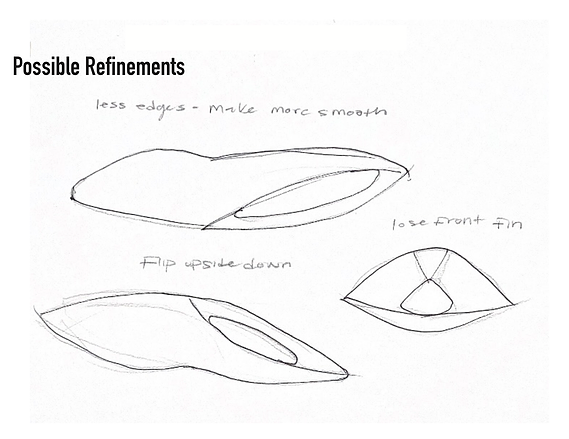 Possible Refinements
less edges - make more smooth
lose front fin
Flip upside down